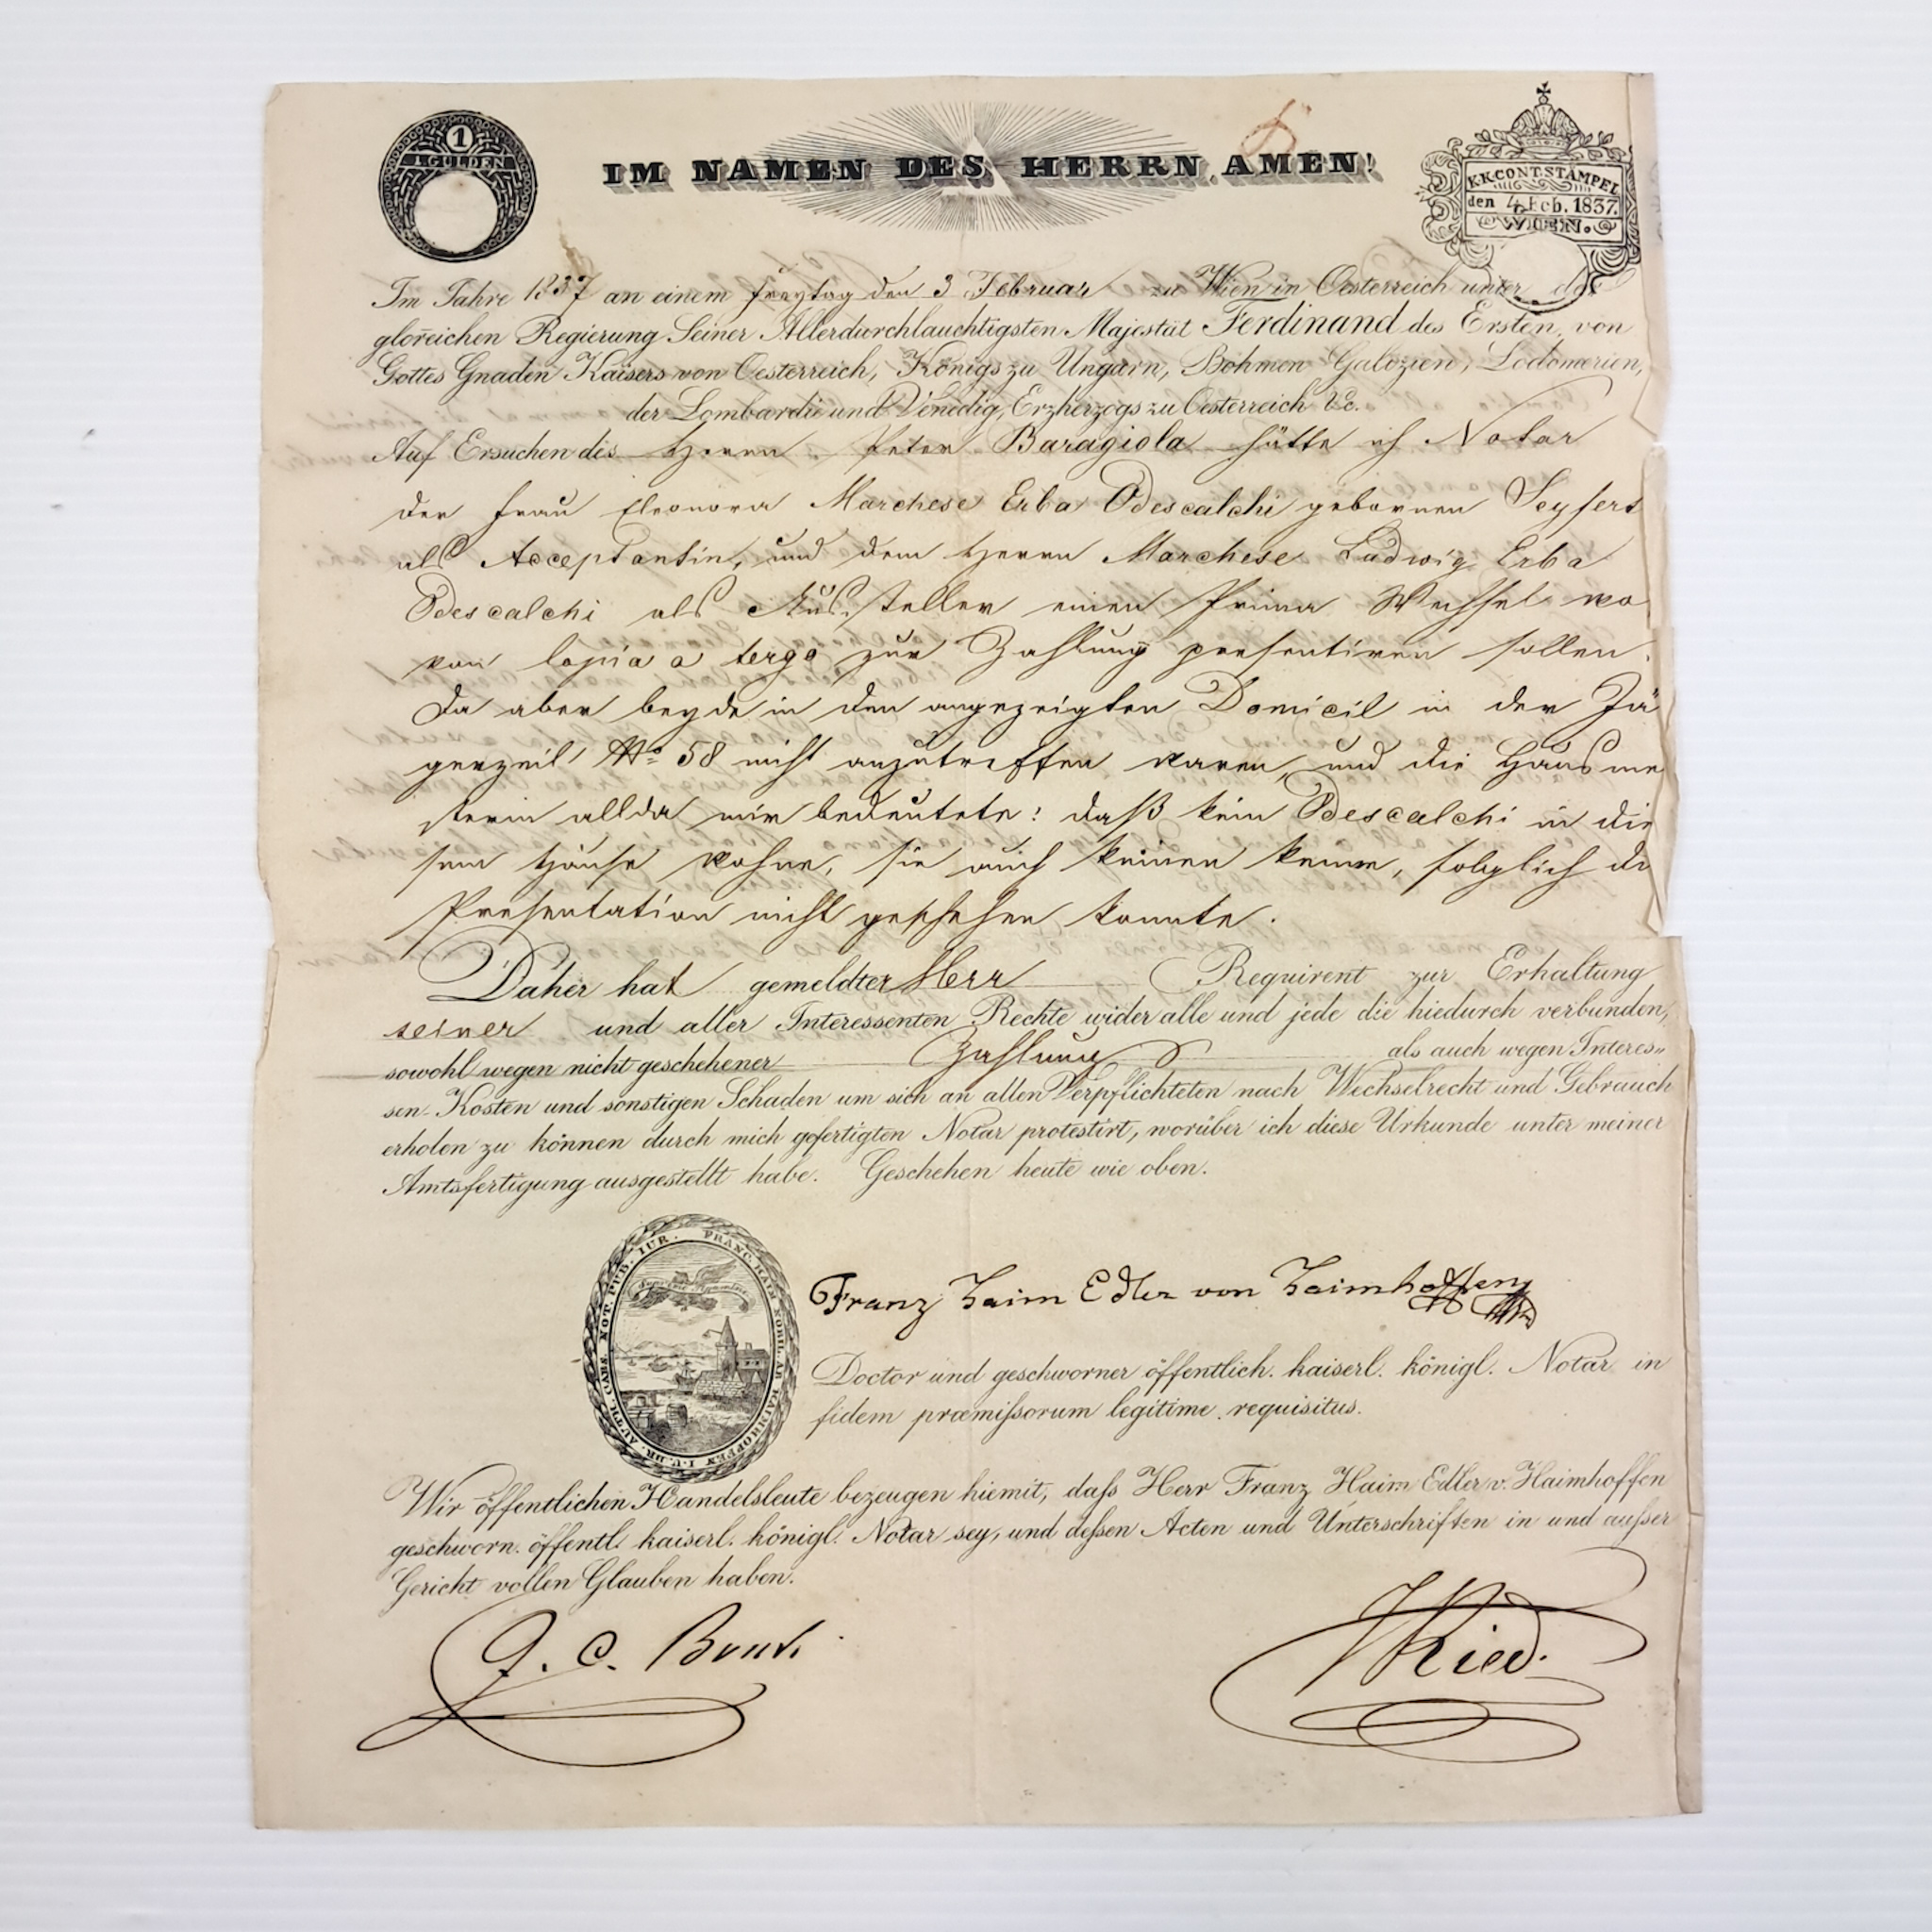 1
1 GULDEN
IM NAMEN DES HERRN. AMEN!
K.K.CONT.STÄMPEL
den 4 Feb. 1837.
WIEN.
Im Jahre 1837 an einem Freytag den 3 Februar zu Wien in Oesterreich unter der
gloreichen Regierung Seiner Allerdurchlauchtigsten Majestät Ferdinand des Ersten, von
Gottes Gnaden Kaisers von Oesterreich, Königs zu Ungarn, Böhmen Galizien, Lodomerien,
der Lombardie und Venedig, Erzherzogs zu Oesterreich &c.
Auf Ersuchen des Herrn Peter Baragiola hätte ich Notar
der Frau Eleonora Marchese Erba Odescalchi gebornen Seyfert
als Acceptantin, und dem Herrn Marchese Ludwig Erba
Odescalchi als Aussteller einen Prima Wechsel wo
von Copia a tergo zur Zahlung presentiren sollen.
Da aber beyde in den angezeigten Domicil in der Jä
gerzeil No 58 nicht anzutreffen waren, und die Hausmei
sterin allda mir bedeutete: daß kein Odescalchi in die
sem Hause wohne, sie auch keinen kenne, folglich die
Presentation nicht geschehen konnte.
Daher hat gemeldter Herr Requirent zur Erhaltung
seiner und aller Interessenten Rechte wider alle und jede die hiedurch verbunden,
sowohl wegen nicht geschehener Zahlung als auch wegen Interes„
sen- Kosten und sonstigen Schaden um sich an allen Verpflichteten nach Wechselrecht und Gebrauch
erholen zu können durch mich gefertigten Notar protestirt, worüber ich diese Urkunde unter meiner
Amtsfertigung ausgestellt habe. Geschehen heute wie oben.
FRANC. HAIM NOBIL. AB HAIMHOFFEN I.U.DR. AUTH. CAES. NOT. PUB. IUR.
Franz Haim Edler von Haimhoffen
Doctor und geschworner öffentlich. kaiserl. königl. Notar in
fidem præmißorum legitime requisitus.
Wir öffentlichen Handelsleute bezeugen hiemit, daß Herr Franz Haim Edler v. Haimhoffen
geschworn. öffentl. kaiserl. königl. Notar sey, und deßen Acten und Unterschriften in und außer
Gericht vollen Glauben haben.
J. C. Ried.